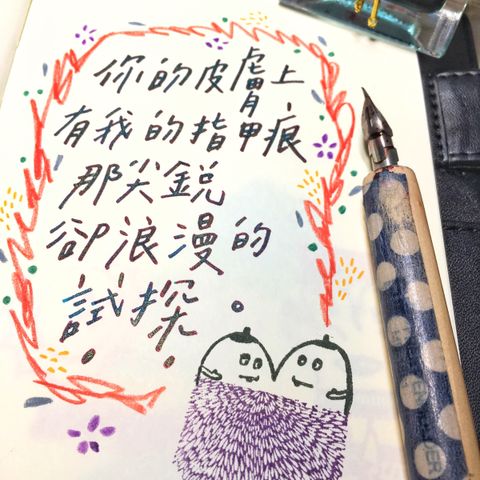 你的皮膚上
有我的指甲痕
那尖銳
卻浪漫的
試探。